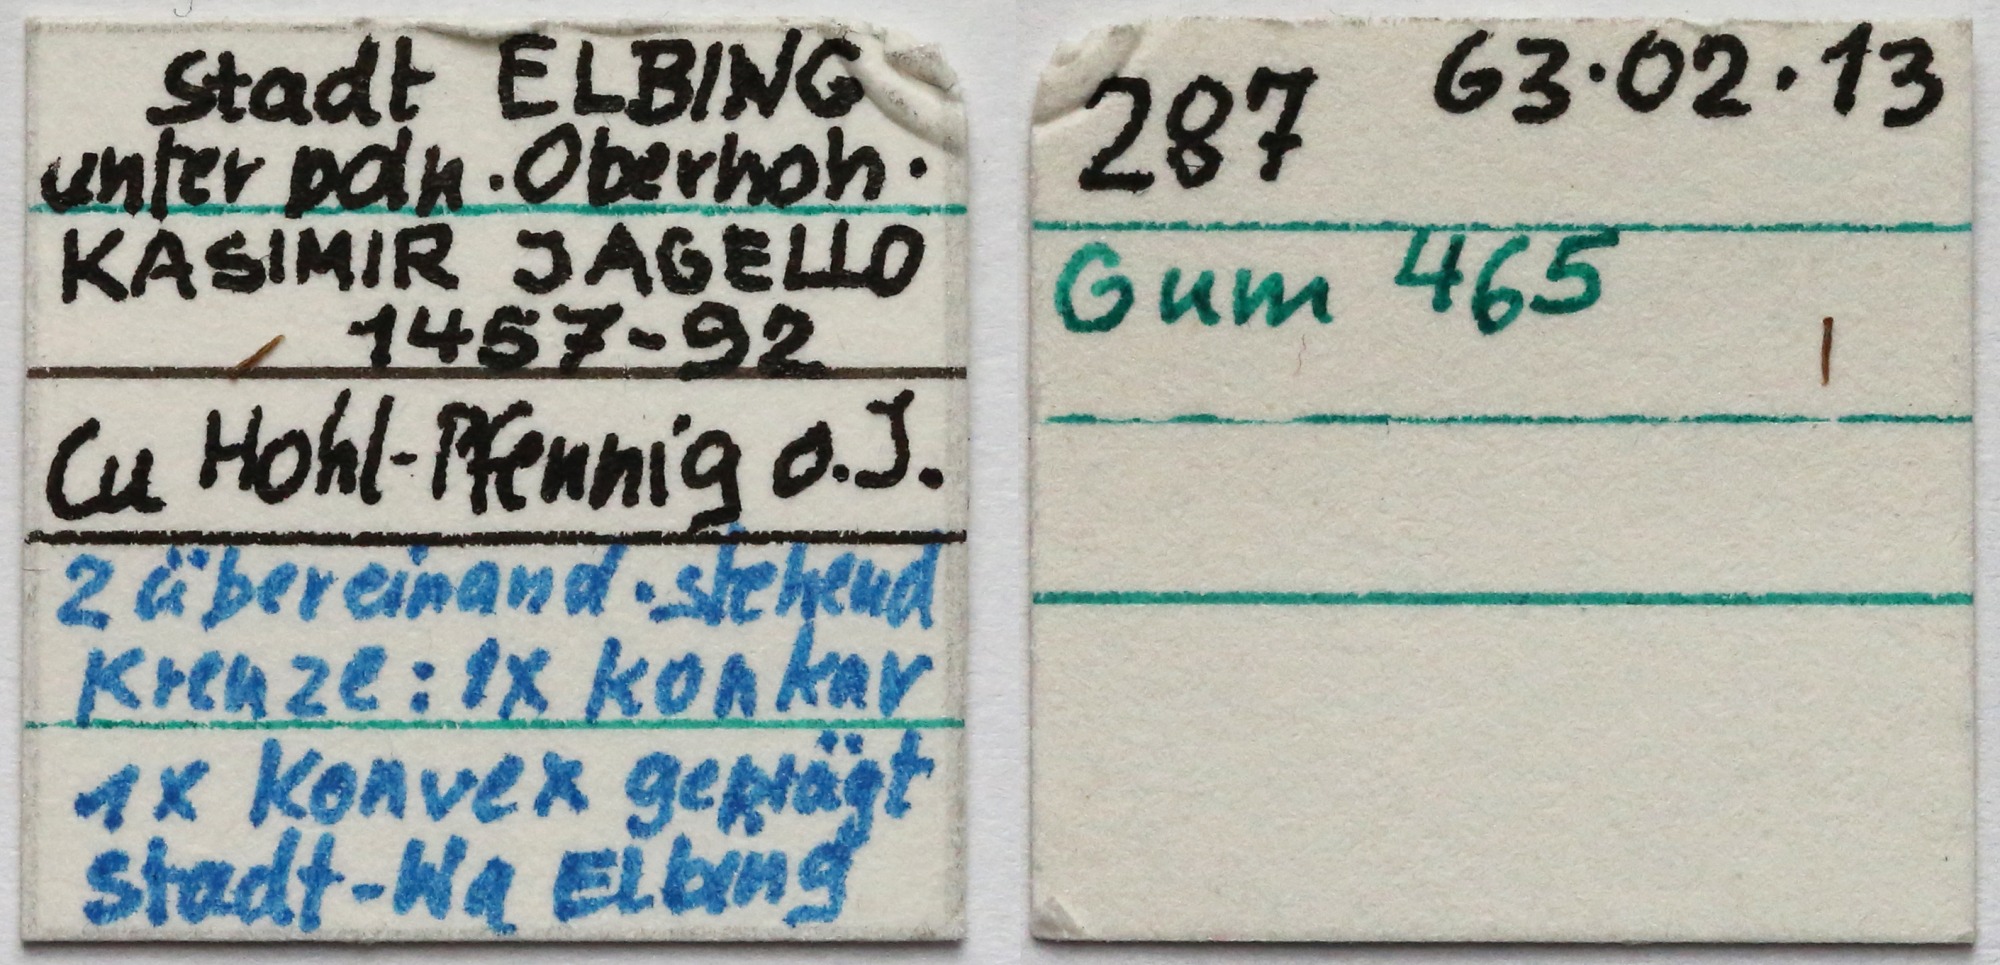 Stadt ELBING
unter poln. Oberhoh.
KASIMIR JAGELLO
1457-92
Cu Hohl-Pfennig o.J.
2 übereinand. stehend
Kreuze: 1x konkav
1x Konvex geprägt
Stadt-Wa Elbing
287 63.02.13
Gum 465